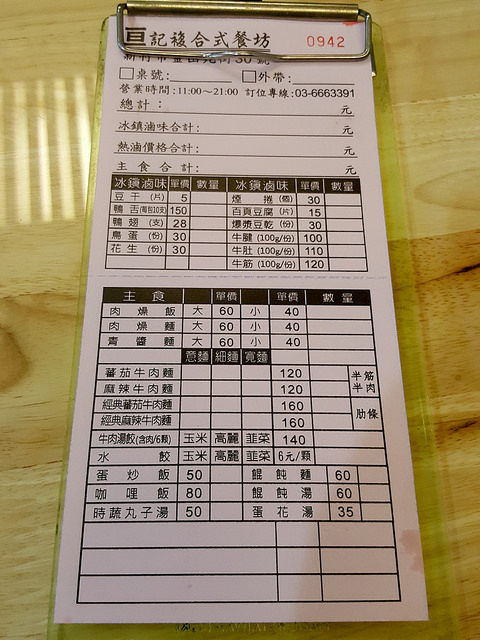 亘記複合式餐坊 0942
□桌號: □外帶:
營業時間:11:00~21:00 訂位專線:03-6663391
總計: 元
冰鎮滷味合計: 元
熱滷價格合計: 元
主食合計: 元
冰鎮滷味 單價 數量 冰鎮滷味 單價 數量
豆干(片) 5 煙捲(個) 30
鴨舌(每包10支) 150 百頁豆腐(片) 15
鴨翅(支) 28 爆漿豆乾(份) 30
鳥蛋(份) 30 牛腱(100g/份) 100
花生(份) 30 牛肚(100g/份) 110
牛筋(100g/份) 120
主食 單價 單價 數量
肉燥飯 大 60 小 40
肉燥麵 大 60 小 40
青醬麵 大 60 小 40
意麵 細麵 寬麵
蕃茄牛肉麵 120 半筋半肉
麻辣牛肉麵 120
經典蕃茄牛肉麵 160 肋條
經典麻辣牛肉麵 160
牛肉湯餃(含肉/6顆) 玉米 高麗 韮菜 140
水餃 玉米 高麗 韮菜 6元/顆
蛋炒飯 50 餛飩麵 60
咖哩飯 80 餛飩湯 60
時蔬丸子湯 50 蛋花湯 35